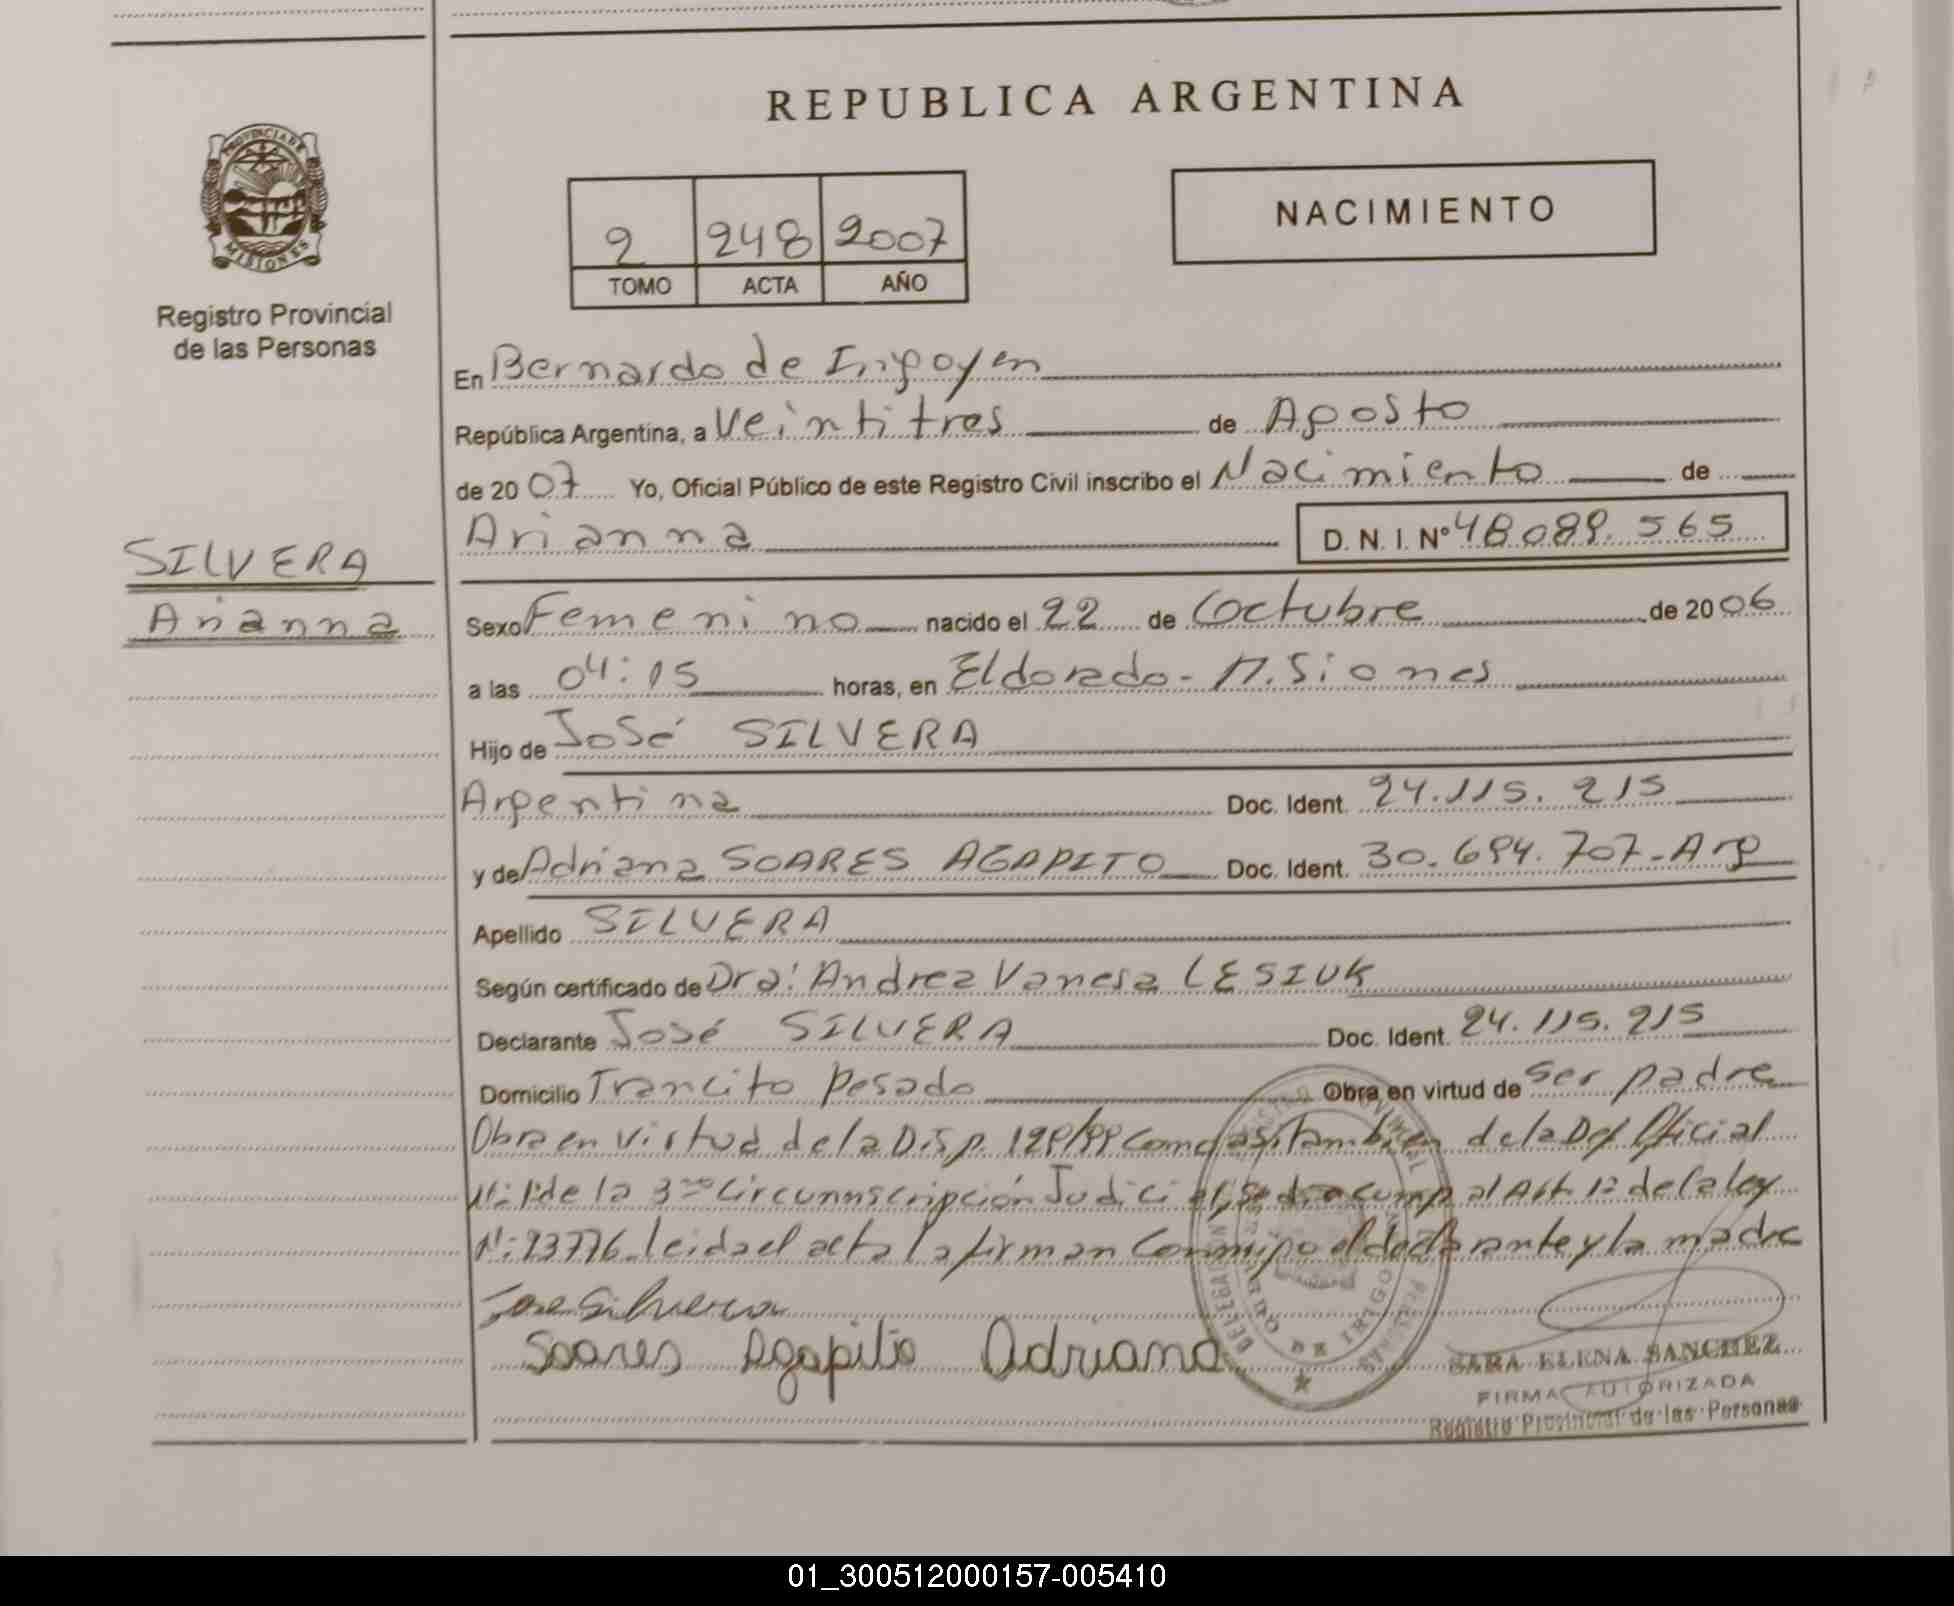 REPUBLICA ARGENTINA
PROVINCIA DE
MISIONES
Registro Provincial
de las Personas
2 248 2007
TOMO ACTA AÑO
NACIMIENTO
En Bernardo de Irigoyen
República Argentina, a Veintitres de Agosto
de 2007 Yo, Oficial Público de este Registro Civil inscribo el Nacimiento de
Arianna D.N.I. Nº 48.089.565
SILVERA
Arianna
Sexo Femenino nacido el 22 de Octubre de 2006
a las 04:15 horas, en Eldorado - Misiones
Hijo de José SILVERA
Argentina Doc. Ident. 24.115.215
y de Adriana SOARES AGAPITO Doc. Ident. 30.694.707-Arg
Apellido SILVERA
Según certificado de Dra: Andrea Vanesa LESIUK
Declarante José SILVERA Doc. Ident. 24.115.215
Domicilio Trancito Pesado Obra en virtud de ser padre
Obra en virtud de la Disp. 129/99 Como asi tambien de la Def Oficial
Nº: 1 de la 3ra Circunnscripción Judicial, se dio cump al Art. 1º de la ley
Nº: 23776. leida el acta la firman Conmigo el declarante y la madre
Jose Silvera
Soares Agapito Adriana
SARA ELENA SANCHEZ
FIRMA AUTORIZADA
Registro Provincial de las Personas
01_300512000157-005410